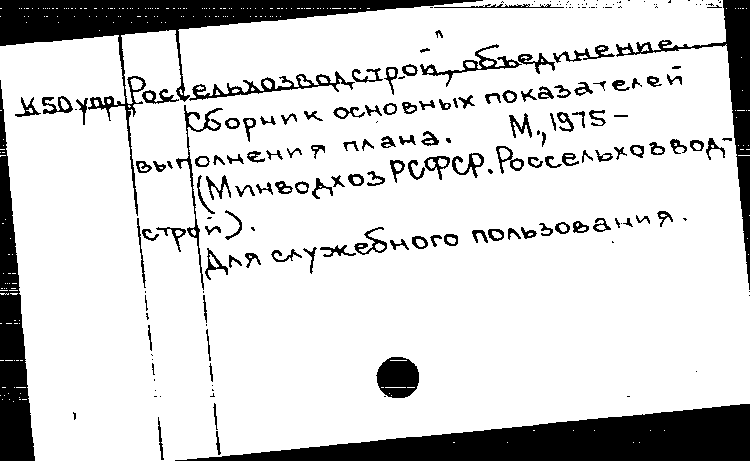 К50упр. „Россельхозводстрой", объединение...
Сборник основных показателей
выполнения плана. М., 1975 –
(Минводхоз РСФСР. Россельхозвод-
строй).
Для служебного пользования.